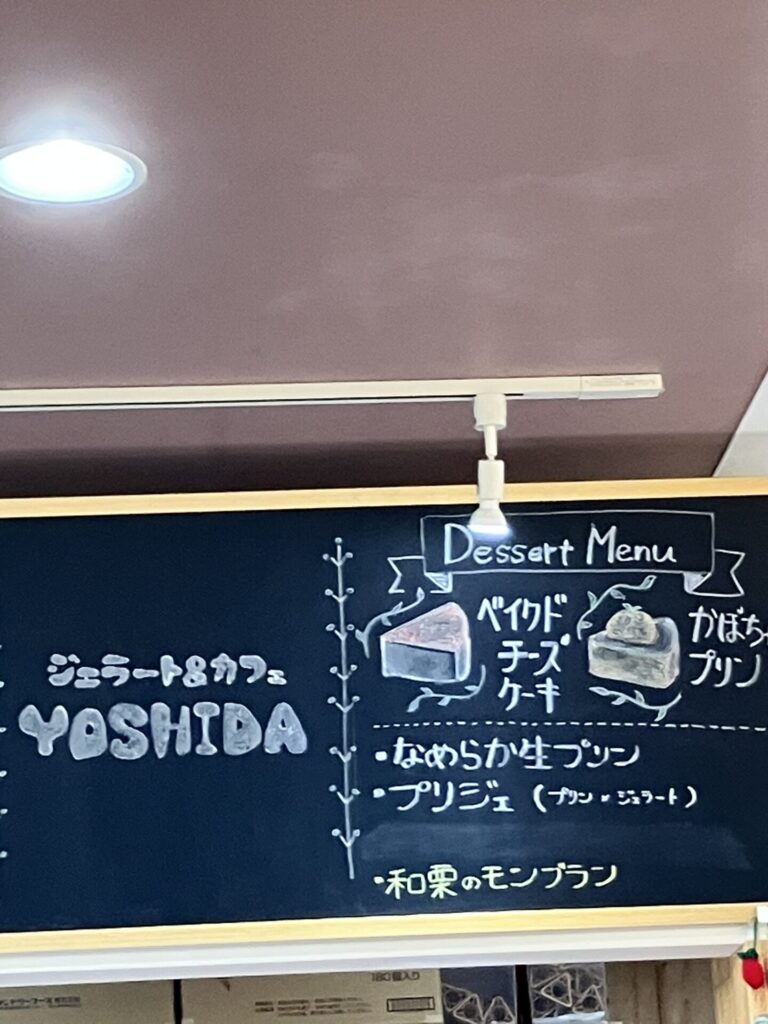 ジェラート&カフェ
YOSHIDA
Dessert Menu
ベイクド
チーズ
ケーキ
かぼちゃ
プリン
・なめらか生プリン
・プリジェ (プリン×ジェラート)
・和栗のモンブラン
180個入り